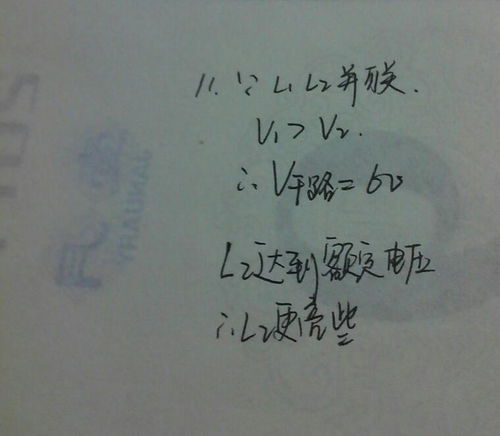 11. ∵ L₁ L₂并联.
V₁ > V₂.
∴ V干路 = 6v
L₂达到额定电压
∴ L₂更亮些